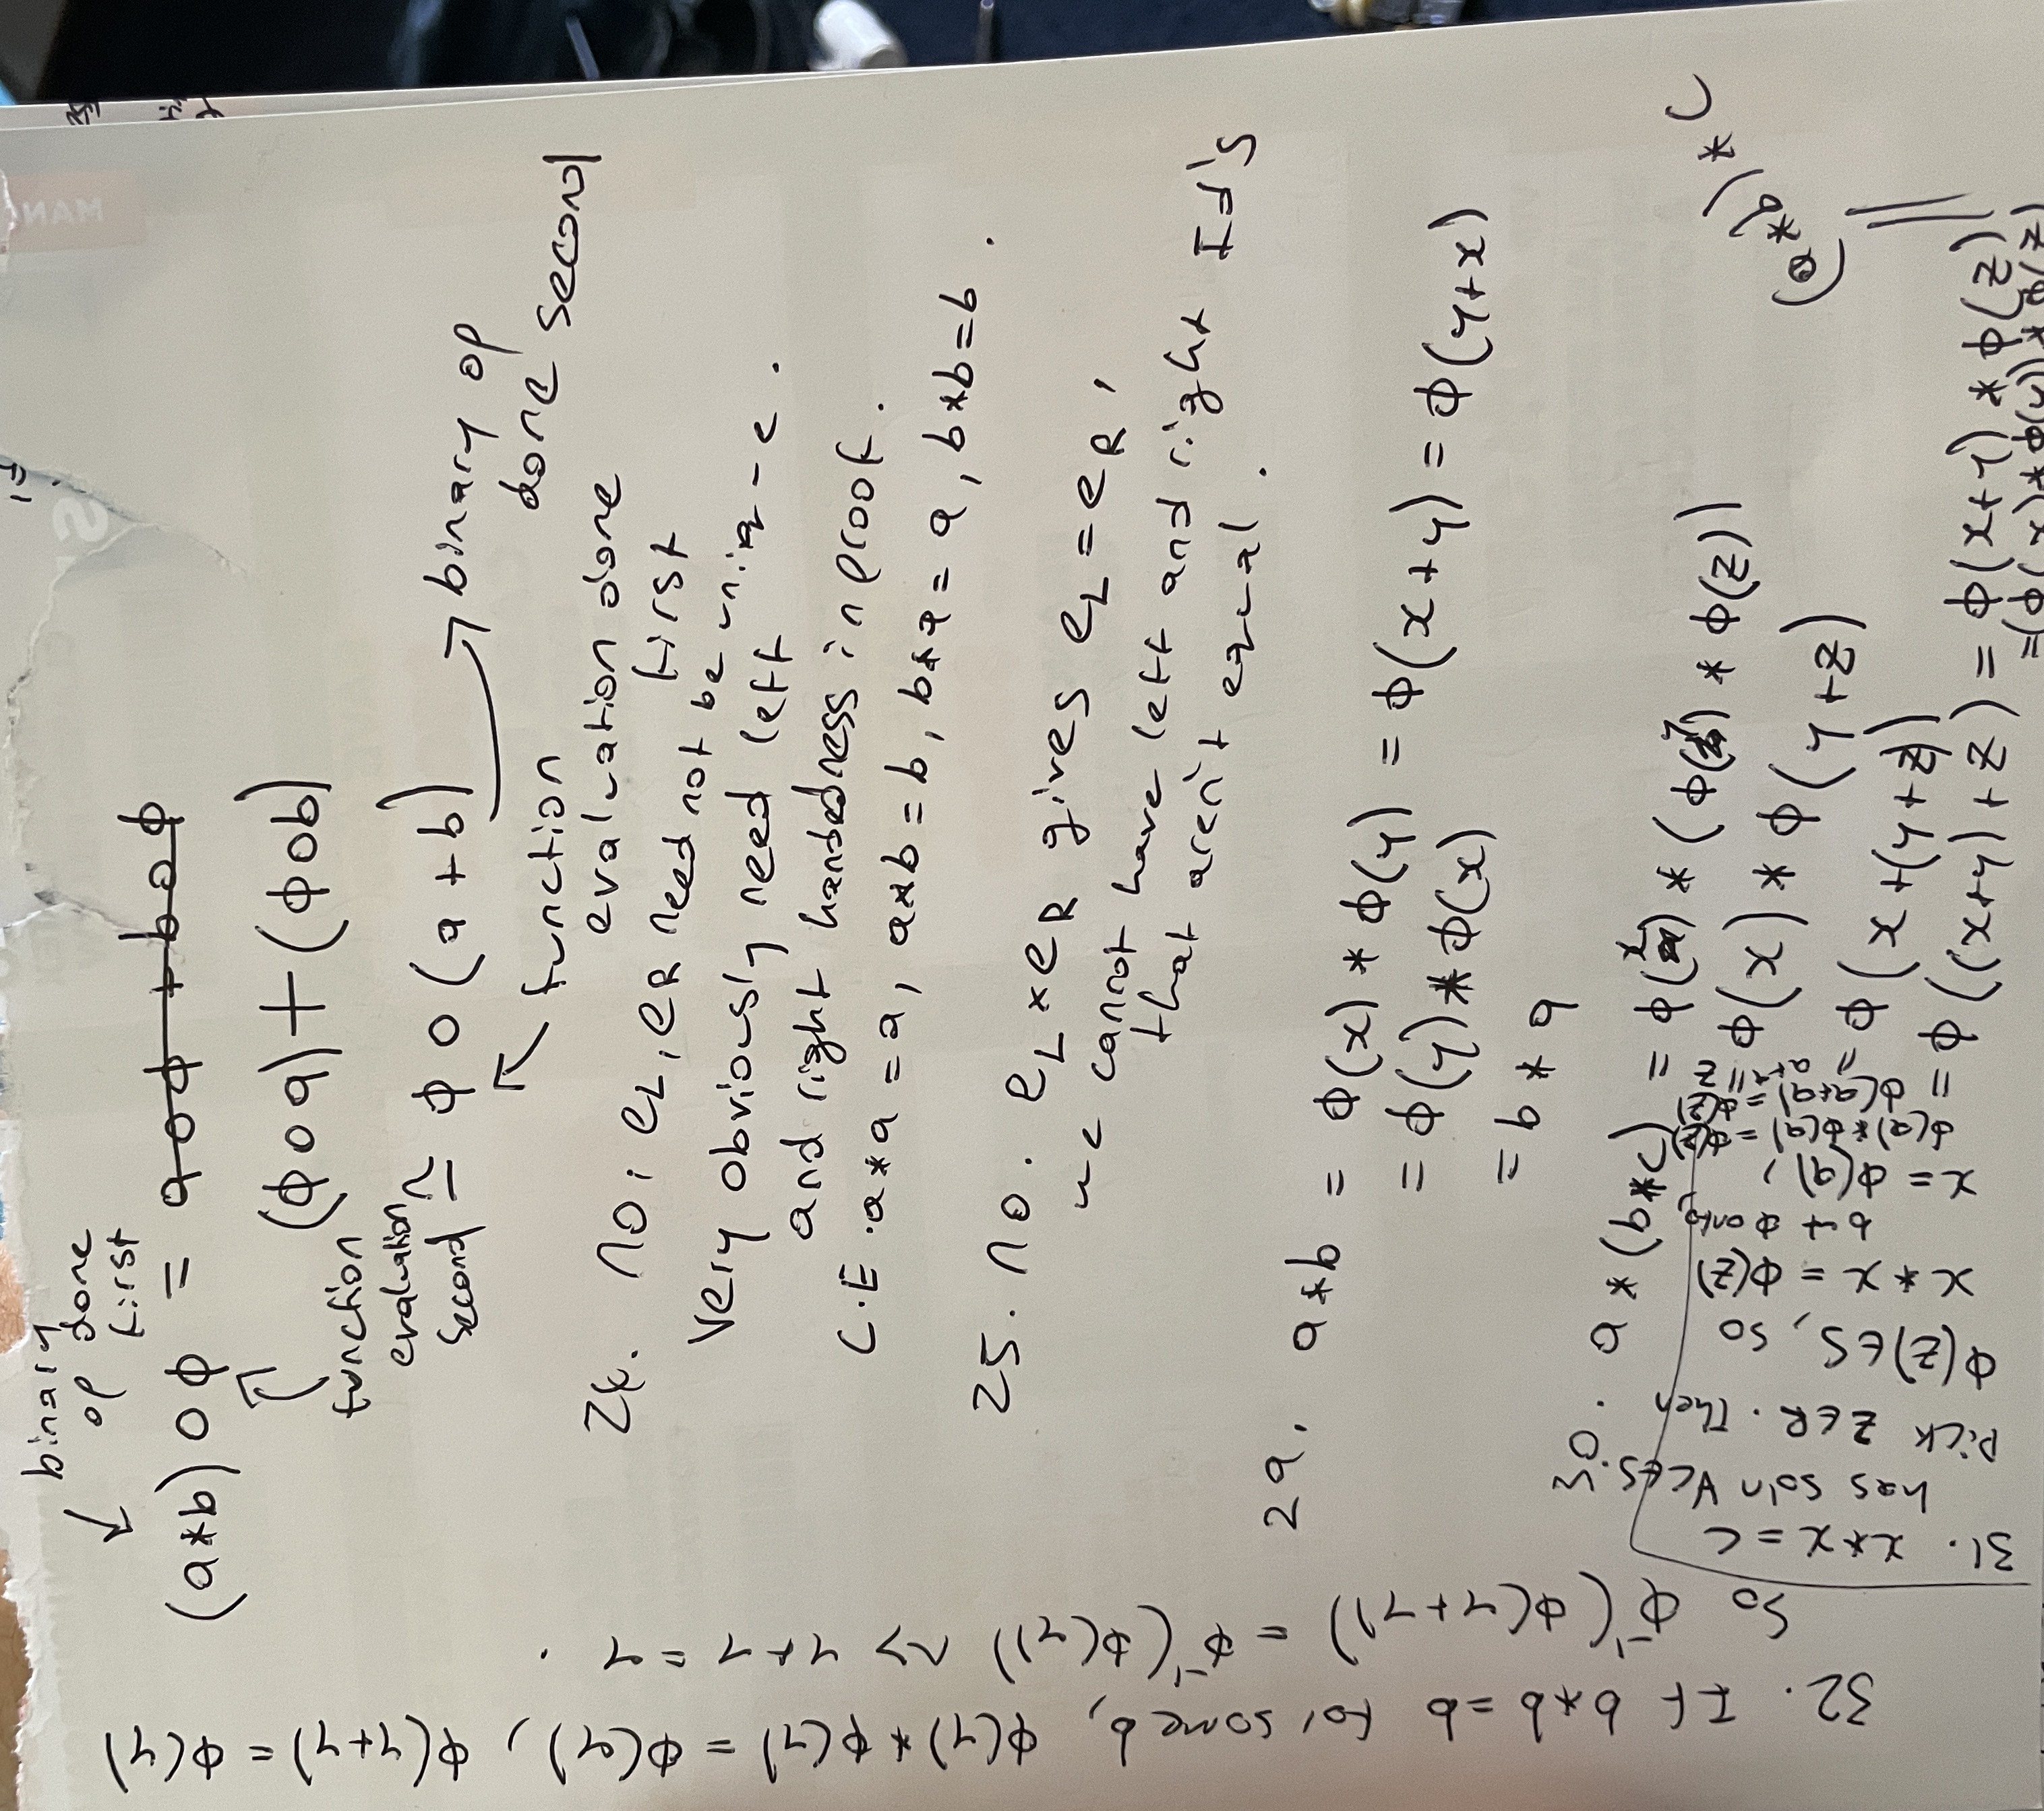 binary
op done
first
(a*b) ∘ ϕ = a∘ϕ + b∘ϕ
(ϕ∘a) + (ϕ∘b)
function
evaluation
second
≃ ϕ ∘ (a + b)
binary op
done second
function
evaluation done
first
24. no. e_L, e_R need not be unique.
Very obviously need left
and right handedness in proof.
C.E. a*a = a, a*b = b, b*a = a, b*b = b.
25. no. e_L * e_R gives e_L = e_R,
we cannot have left and right Id's
that aren't equal.
29. a*b = ϕ(x) * ϕ(y) = ϕ(x+y) = ϕ(y+x)
= ϕ(y) * ϕ(x)
= b * a
30. a * (b*c) = ϕ(x) * (ϕ(y) * ϕ(z))
ϕ(x) * ϕ(y+z)
ϕ(x+(y+z))
= ϕ((x+y)+z) = ϕ(x+y) * ϕ(z)
=(ϕ(x)*ϕ(y))*ϕ(z)
(a*b)*c
31. x*x=c
has sol'n ∀c∈S.
Pick z∈R. Then
ϕ(z)∈S, so
x*x = ϕ(z)
but ϕ onto,
x = ϕ(a),
ϕ(a)*ϕ(a)=ϕ(z)
ϕ(a+a)=ϕ(z)
a+a=z
32. If b*b=b for some b, ϕ(y)*ϕ(y) = ϕ(y), ϕ(y+y) = ϕ(y)
So ϕ⁻¹(ϕ(y+y)) = ϕ⁻¹(ϕ(y)) ~> y+y=y.